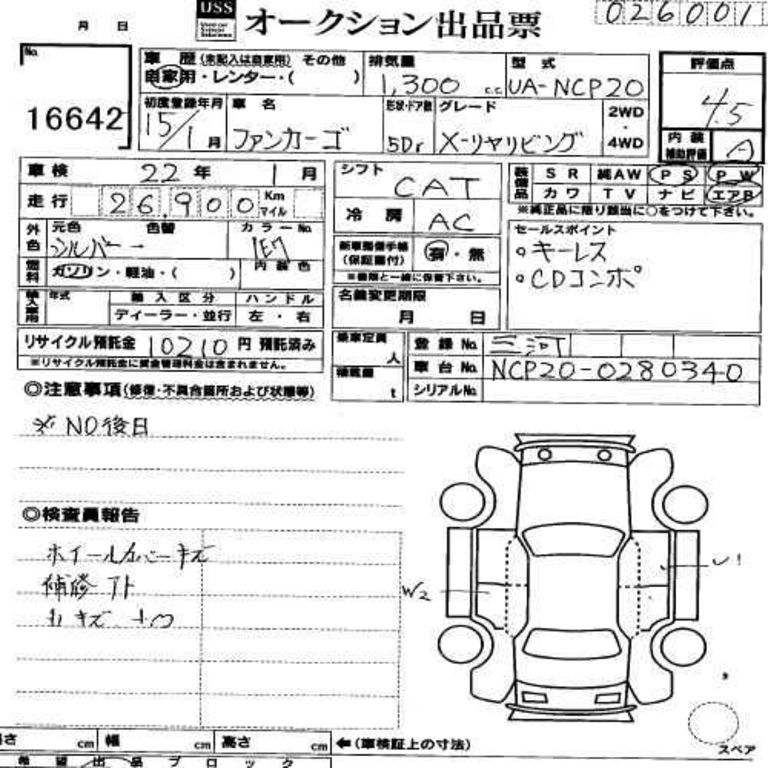 USS オークション出品票 026001
月 日
No. 16642
車歴 (未記入は自家用) その他
自家用・レンター・( )
排気量 1,300 c.c.
型式 UA-NCP20
評価点 4.5
初度登録年月 15/1月
車名 ファンカーゴ
形状・ドア数 5Dr
グレード X-リヤリビング
2WD・4WD
内装補助評価 A
車検 22年 1月
走行 26,900 Km マイル
外色 元色 色替 カラーNo.
シルバー 1E7
燃料 ガソリン・軽油・( ) 内装色
輸入車用 年式 輸入区分 ハンドル
ディーラー・並行 左・右
リサイクル預託金 10210円 預託済み
※リサイクル預託金に資金管理料金は含まれません。
シフト CAT
冷房 AC
新車整備手帳(保証書付) 有・無
※書類と一緒に保管下さい。
名義変更期限
月 日
乗車定員 人
積載量 t
装備品 SR 純AW PS PW
カワ TV ナビ エアB
※純正品に限り該当に○をつけて下さい。
セールスポイント
・キーレス
・CDコンポ
登録No.
車台No. NCP20-0280340
シリアルNo.
◎注意事項(修復・不具合箇所および状態等)
※ NO後日
◎検査員報告
ホイールカバーキズ
補修アト
小キズ
W2
U1
高さ cm 幅 cm 高さ cm ←(車検証上の寸法)
スペア
希望出品ブロック